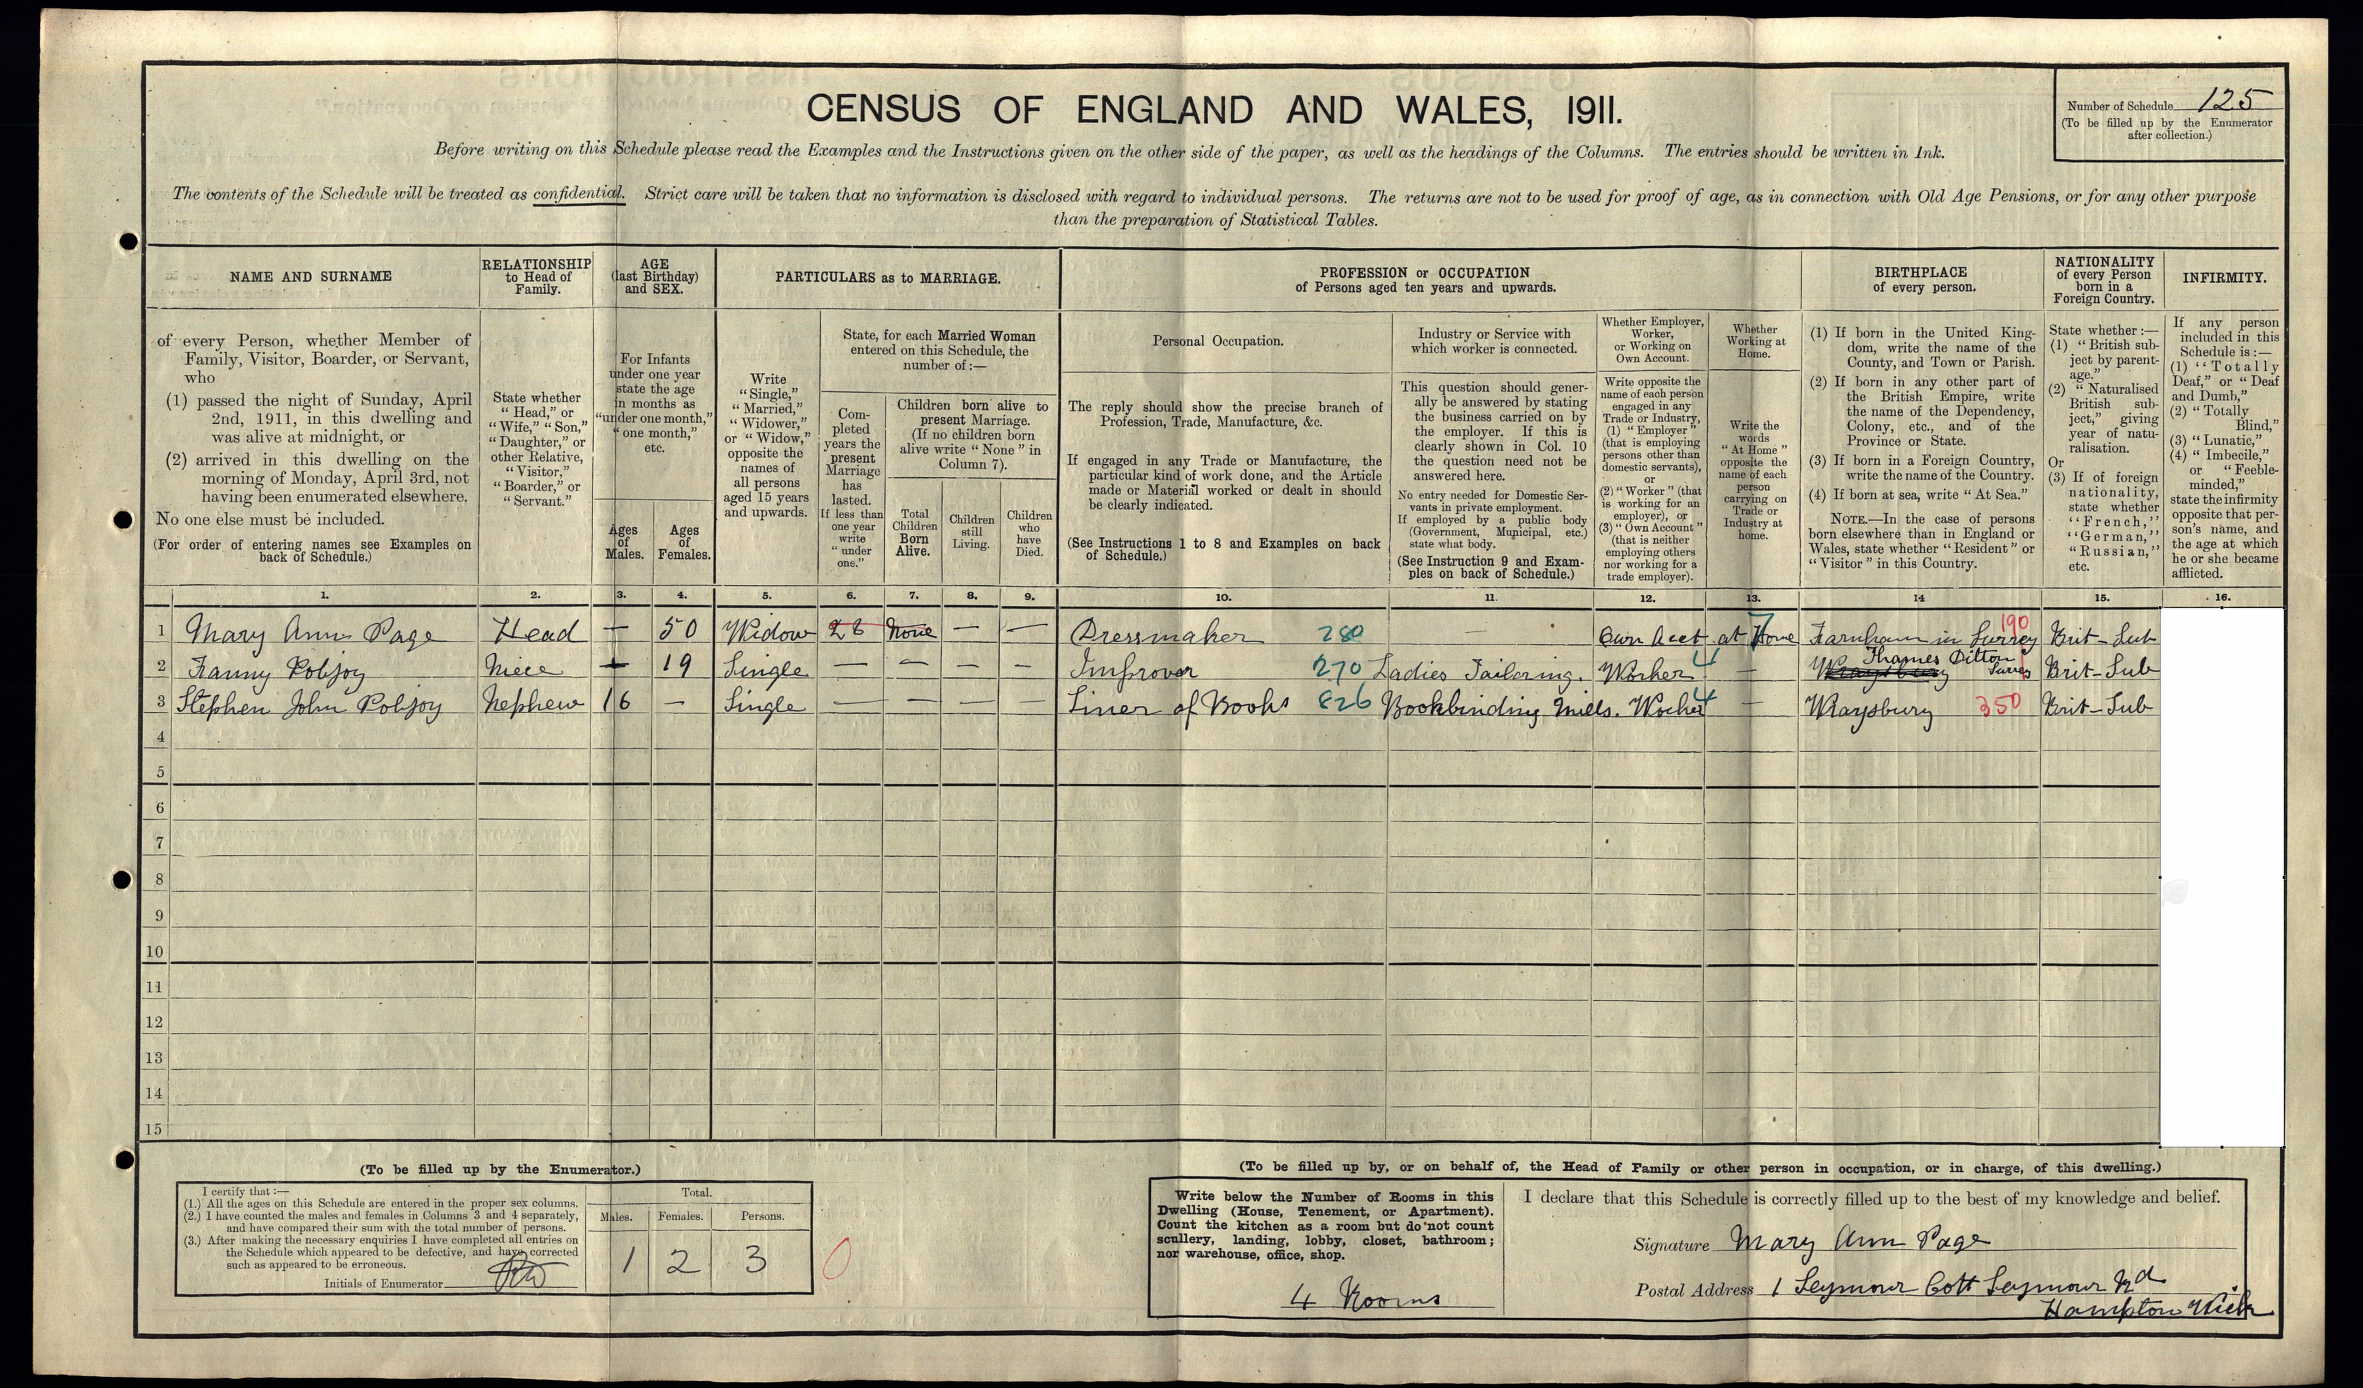 CENSUS OF ENGLAND AND WALES, 1911.
Number of Schedule 125
(To be filled up by the Enumerator
after collection.)
Before writing on this Schedule please read the Examples and the Instructions given on the other side of the paper, as well as the headings of the Columns. The entries should be written in Ink.
The contents of the Schedule will be treated as confidential. Strict care will be taken that no information is disclosed with regard to individual persons. The returns are not to be used for proof of age, as in connection with Old Age Pensions, or for any other purpose
than the preparation of Statistical Tables.
NAME AND SURNAME
of every Person, whether Member of
Family, Visitor, Boarder, or Servant,
who
(1) passed the night of Sunday, April
2nd, 1911, in this dwelling and
was alive at midnight, or
(2) arrived in this dwelling on the
morning of Monday, April 3rd, not
having been enumerated elsewhere.
No one else must be included.
(For order of entering names see Examples on
back of Schedule.)
RELATIONSHIP
to Head of
Family.
State whether
"Head," or
"Wife," "Son,"
"Daughter," or
other Relative,
"Visitor,"
"Boarder," or
"Servant."
AGE
(last Birthday)
and SEX.
For Infants
under one year
state the age
in months as
"under one month,"
"one month,"
etc.
Ages
of
Males.
Ages
of
Females.
PARTICULARS as to MARRIAGE.
Write
"Single,"
"Married,"
"Widower,"
or "Widow,"
opposite the
names of
all persons
aged 15 years
and upwards.
State, for each Married Woman
entered on this Schedule, the
number of:—
Com-
pleted
years the
present
Marriage
has
lasted.
If less than
one year
write
"under
one."
Children born alive to
present Marriage.
(If no children born
alive write "None" in
Column 7).
Total
Children
Born
Alive.
Children
still
Living.
Children
who
have
Died.
PROFESSION or OCCUPATION
of Persons aged ten years and upwards.
Personal Occupation.
The reply should show the precise branch of
Profession, Trade, Manufacture, &c.
If engaged in any Trade or Manufacture, the
particular kind of work done, and the Article
made or Material worked or dealt in should
be clearly indicated.
(See Instructions 1 to 8 and Examples on back
of Schedule.)
Industry or Service with
which worker is connected.
This question should gener-
ally be answered by stating
the business carried on by
the employer. If this is
clearly shown in Col. 10
the question need not be
answered here.
No entry needed for Domestic Ser-
vants in private employment.
If employed by a public body
(Government, Municipal, etc.)
state what body.
(See Instruction 9 and Exam-
ples on back of Schedule.)
Whether Employer,
Worker,
or Working on
Own Account.
Write opposite the
name of each person
engaged in any
Trade or Industry,
(1) "Employer"
(that is employing
persons other than
domestic servants),
or
(2) "Worker" (that
is working for an
employer), or
(3) "Own Account"
(that is neither
employing others
nor working for a
trade employer).
Whether
Working at
Home.
Write the
words
"At Home"
opposite the
name of each
person
carrying on
Trade or
Industry at
home.
BIRTHPLACE
of every person.
(1) If born in the United King-
dom, write the name of the
County, and Town or Parish.
(2) If born in any other part of
the British Empire, write
the name of the Dependency,
Colony, etc., and of the
Province or State.
(3) If born in a Foreign Country,
write the name of the Country.
(4) If born at sea, write "At Sea."
NOTE.—In the case of persons
born elsewhere than in England or
Wales, state whether "Resident" or
"Visitor" in this Country.
NATIONALITY
of every Person
born in a
Foreign Country.
State whether:—
(1) "British sub-
ject by parent-
age."
(2) "Naturalised
British sub-
ject," giving
year of natu-
ralisation.
Or
(3) If of foreign
nationality,
state whether
"French,"
"German,"
"Russian,"
etc.
INFIRMITY.
If any person
included in this
Schedule is:—
(1) "Totally
Deaf," or "Deaf
and Dumb,"
(2) "Totally
Blind,"
(3) "Lunatic,"
(4) "Imbecile,"
or "Feeble-
minded,"
state the infirmity
opposite that per-
son's name, and
the age at which
he or she became
afflicted.
1. 2. 3. 4. 5. 6. 7. 8. 9. 10. 11. 12. 13. 14 15. 16.
1 Mary Ann Page Head — 50 Widow 28 None — — Dressmaker 280 — Own Acct at Home 7 Farnham in Surrey 190 Brit-Sub
2 Fanny Pobjoy Niece — 19 Single — — — — Improver 270 Ladies Tailoring. Worker 4 — Wraysbury Thames Ditton Surrey Brit-Sub
3 Stephen John Pobjoy Nephew 16 — Single — — — — Liner of Books 826 Bookbinding Mills. Worker 4 — Wraysbury 350 Brit-Sub
4
5
6
7
8
9
10
11
12
13
14
15
(To be filled up by the Enumerator.)
I certify that:—
(1.) All the ages on this Schedule are entered in the proper sex columns.
(2.) I have counted the males and females in Columns 3 and 4 separately,
and have compared their sum with the total number of persons.
(3.) After making the necessary enquiries I have completed all entries on
the Schedule which appeared to be defective, and have corrected
such as appeared to be erroneous.
Initials of Enumerator
Total.
Males. Females. Persons.
1 2 3
0
(To be filled up by, or on behalf of, the Head of Family or other person in occupation, or in charge, of this dwelling.)
Write below the Number of Rooms in this
Dwelling (House, Tenement, or Apartment).
Count the kitchen as a room but do not count
scullery, landing, lobby, closet, bathroom;
nor warehouse, office, shop.
4 Rooms
I declare that this Schedule is correctly filled up to the best of my knowledge and belief.
Signature Mary Ann Page
Postal Address 1 Seymour Cott Seymour Rd
Hampton Wick